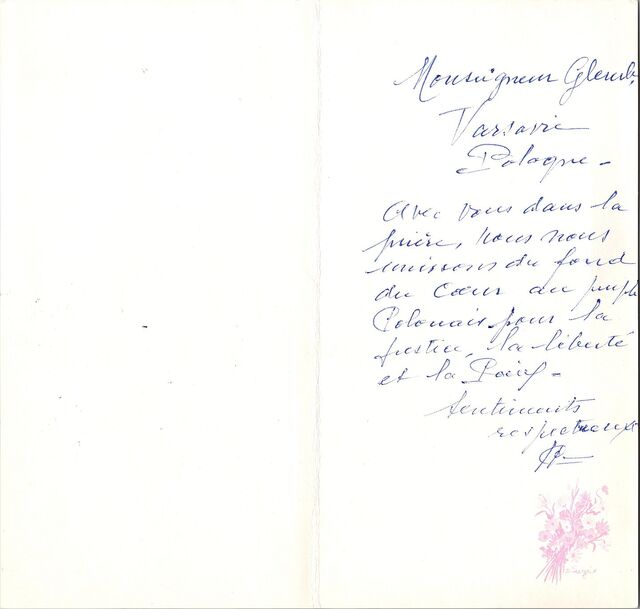 Monseigneur Glemb
Varsovie
Pologne -
Avec vous dans la
prière, nous nous
unissons du fond
du Cœur au peuple
Polonais pour la
justice, la liberté
et la Paix -
Sentiments
respectueux